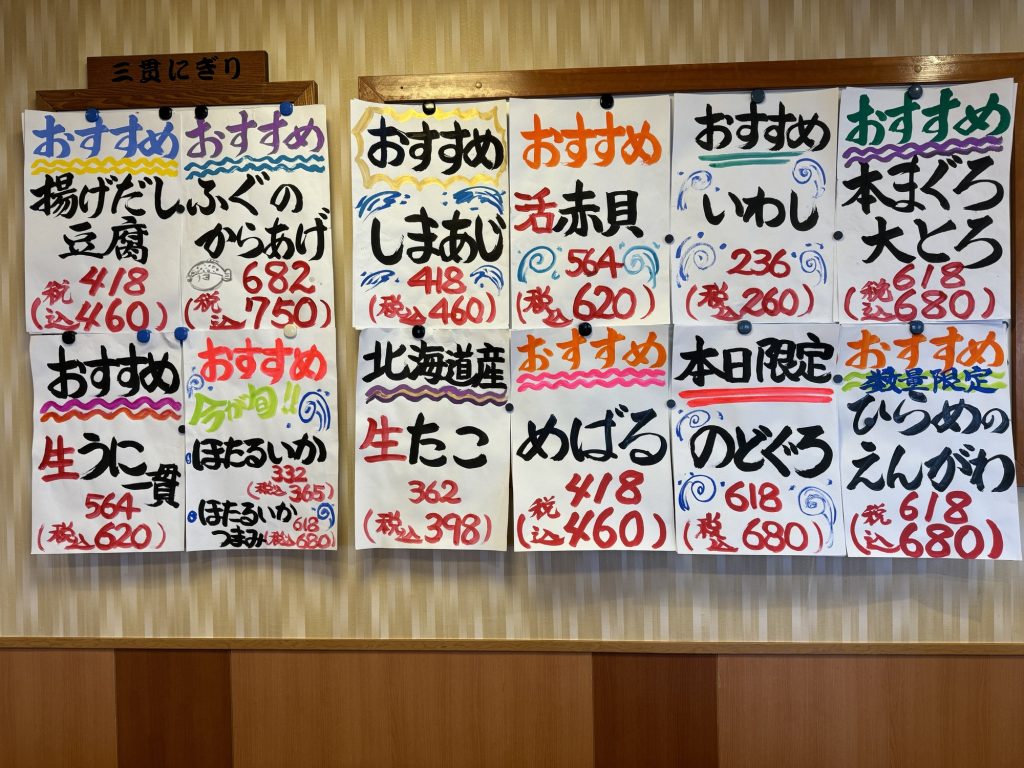 三貫にぎり
おすすめ
揚げだし
豆腐
418
(税込460)
おすすめ
ふぐの
からあげ
682
(税込750)
おすすめ
しまあじ
418
(税込460)
おすすめ
活赤貝
564
(税込620)
おすすめ
いわし
236
(税込260)
おすすめ
本まぐろ
大とろ
618
(税込680)
おすすめ
生うに一貫
564
(税込620)
おすすめ
今が旬!!
ほたるいか
332
(税込365)
ほたるいか
つまみ
618
(税込680)
北海道産
生たこ
362
(税込398)
おすすめ
めばる
418
(税込460)
本日限定
のどぐろ
618
(税込680)
おすすめ
数量限定
ひらめの
えんがわ
618
(税込680)